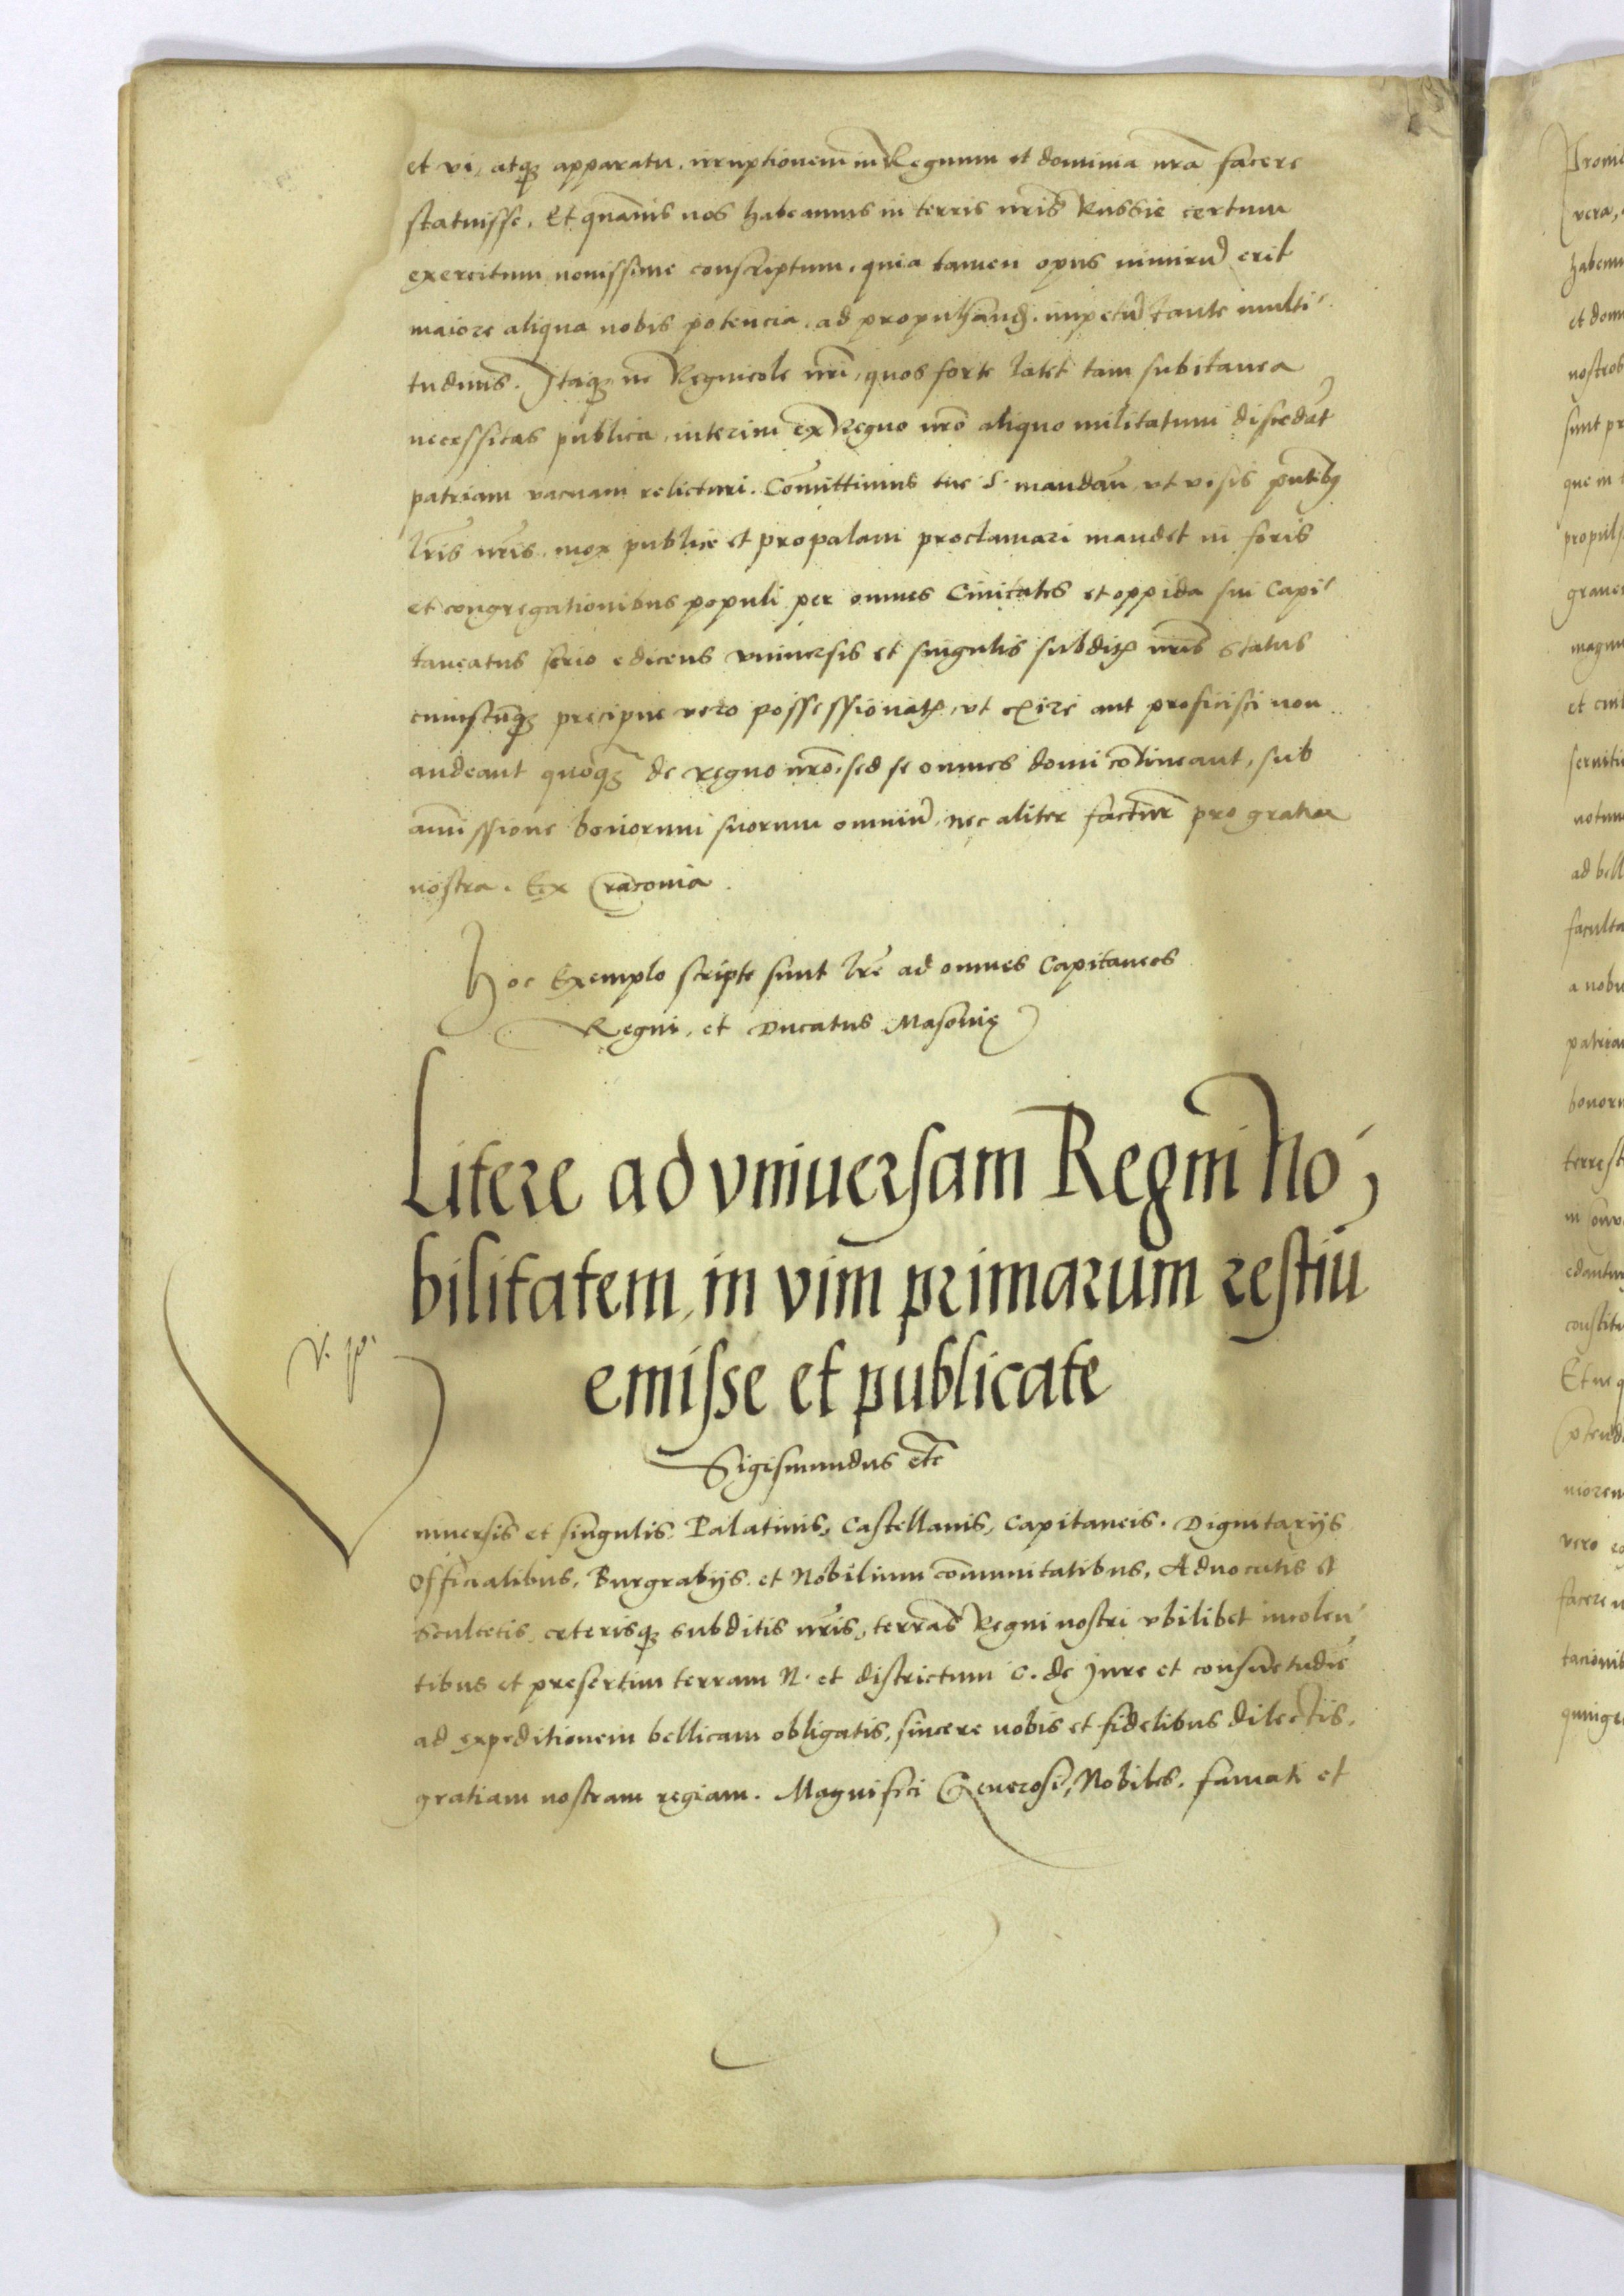 et vi, atqꝫ apparatu, irruptionem in Regnum et dominia nr̃a facere
statuisse. Et quãvis nos habeamus in terris nr̃is Russie certum
exercitum novissime conscriptum, quia tamen opus nimirũ erit
maiore aliqua nobis potencia, ad impetũ tante multi
tudinis. Itaqꝫ ne Regnicole nr̃i, quos forte latet tam subitanea
necessitas publica, interim ex Regno nr̃o aliquo militatum discedãt
patriam vacuam relicturi. Com̃ittimus tue S. mandan̄, vt visis pñtibꝫ
lr̃is nr̃is, mox publice et propalam proclamari mandet in foris
et congregationibus populi per omnes Civitates et oppida sui Capi
taneatus serio edicens vniversis et singulis subditꝭ nr̃is status
cuiuscũqꝫ precipue vero possessionatꝭ, vt exire aut proficisci non
audeant quoq̃ꝫ de regno nr̃o, sed se omnes domi cõtineant, sub
amissione bonorum suorum omniũ, nec aliter factur̃ pro gratia
nostra. Ex Cracovia.
Hoc Exemplo scripte sunt lr̃e ad omnes Capitaneos
Regni, et Ducatus Masovię
Litere ad vniuersam Regni No
bilitatem, in vim primarum restiũ
emisse et publicate
V. p.
Sigismundus etc̃
niversis et singulis, Palatinis, Castellanis, Capitaneis, Dignitarijs
Officialibus, Burgrabijs, et Nobilium cõmunitatibus, Advocatis et
Scultetis, ceterisqꝫ subditis nr̃is, terras Regni nostri vbilibet incolen
tibus et presertim terram N. et districtum C. de Jure et consuetudĩe
ad expeditionem bellicam obligatis, sincere nobis et fidelibus dilectis,
gratiam nostram regiam. Magnifici Generosi, Nobiles, famati et